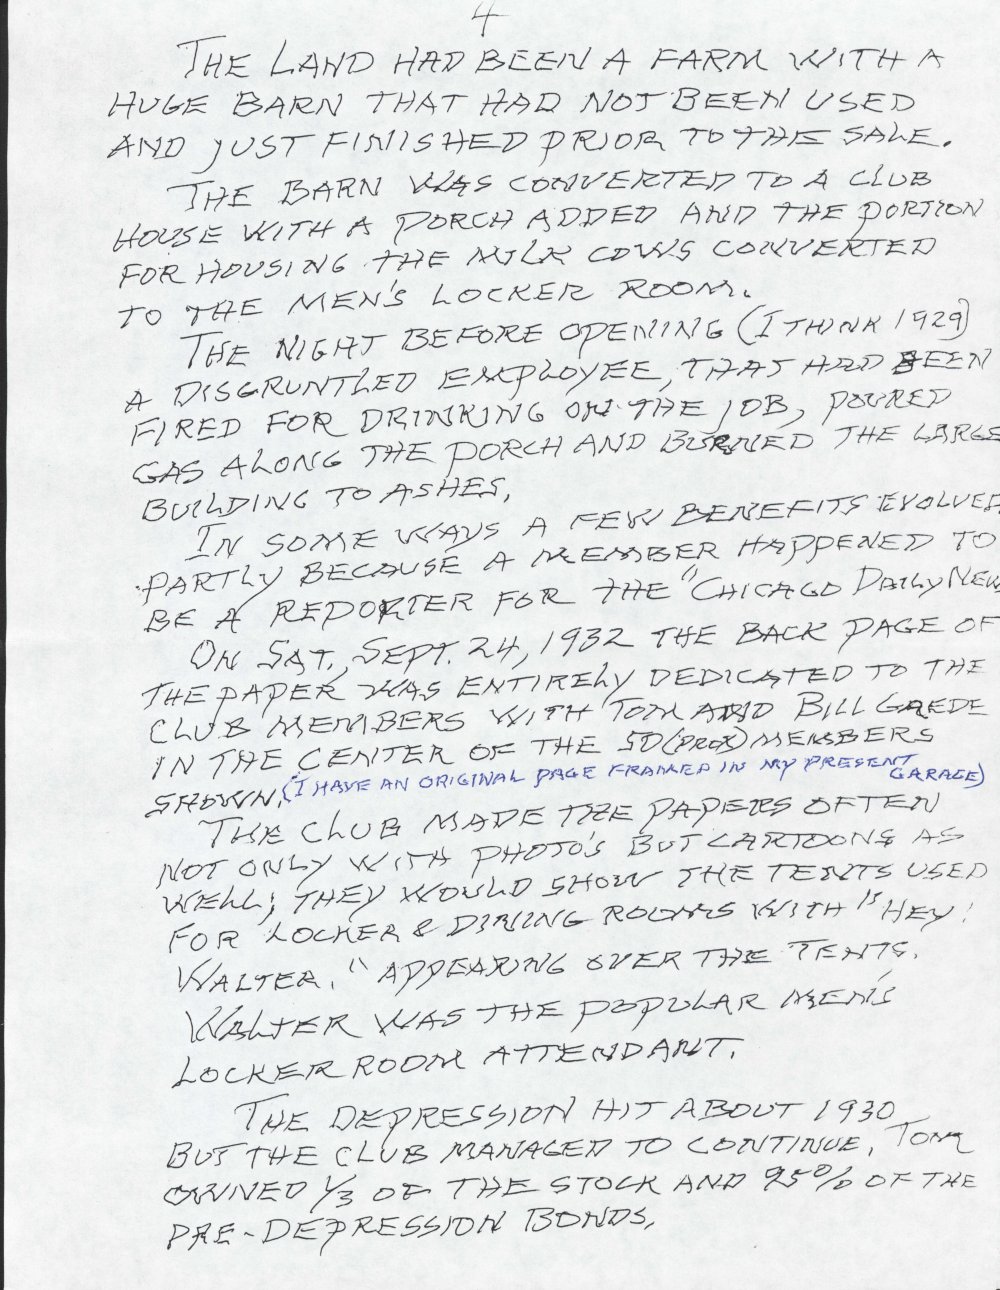 4
THE LAND HAD BEEN A FARM WITH A
HUGE BARN THAT HAD NOT BEEN USED
AND JUST FINISHED PRIOR TO THE SALE.
THE BARN WAS CONVERTED TO A CLUB
HOUSE WITH A PORCH ADDED AND THE PORTION
FOR HOUSING THE MILK COWS CONVERTED
TO THE MEN'S LOCKER ROOM.
THE NIGHT BEFORE OPENING (I THINK 1929)
A DISGRUNTLED EMPLOYEE, THAT HAD BEEN
FIRED FOR DRINKING ON THE JOB, POURED
GAS ALONG THE PORCH AND BURNED THE LARGE
BUILDING TO ASHES.
IN SOME WAYS A FEW BENEFITS EVOLVED
PARTLY BECAUSE A MEMBER HAPPENED TO
BE A REPORTER FOR THE "CHICAGO DAILY NEWS
ON SAT., SEPT. 24, 1932 THE BACK PAGE OF
THE PAPER WAS ENTIRELY DEDICATED TO THE
CLUB MEMBERS WITH TOM AND BILL GREDE
IN THE CENTER OF THE 50 (PROX) MEMBERS
SHOWN. (I HAVE AN ORIGINAL PAGE FRAMED IN MY PRESENT GARAGE)
THE CLUB MADE THE PAPERS OFTEN
NOT ONLY WITH PHOTO'S BUT CARTOONS AS
WELL; THEY WOULD SHOW THE TENTS USED
FOR LOCKER & DINING ROOMS WITH "HEY!
WALTER." APPEARING OVER THE TENTS.
WALTER WAS THE POPULAR MEN'S
LOCKER ROOM ATTENDANT.
THE DEPRESSION HIT ABOUT 1930
BUT THE CLUB MANAGED TO CONTINUE. TOM
OWNED 1/3 OF THE STOCK AND 95% OF THE
PRE-DEPRESSION BONDS.